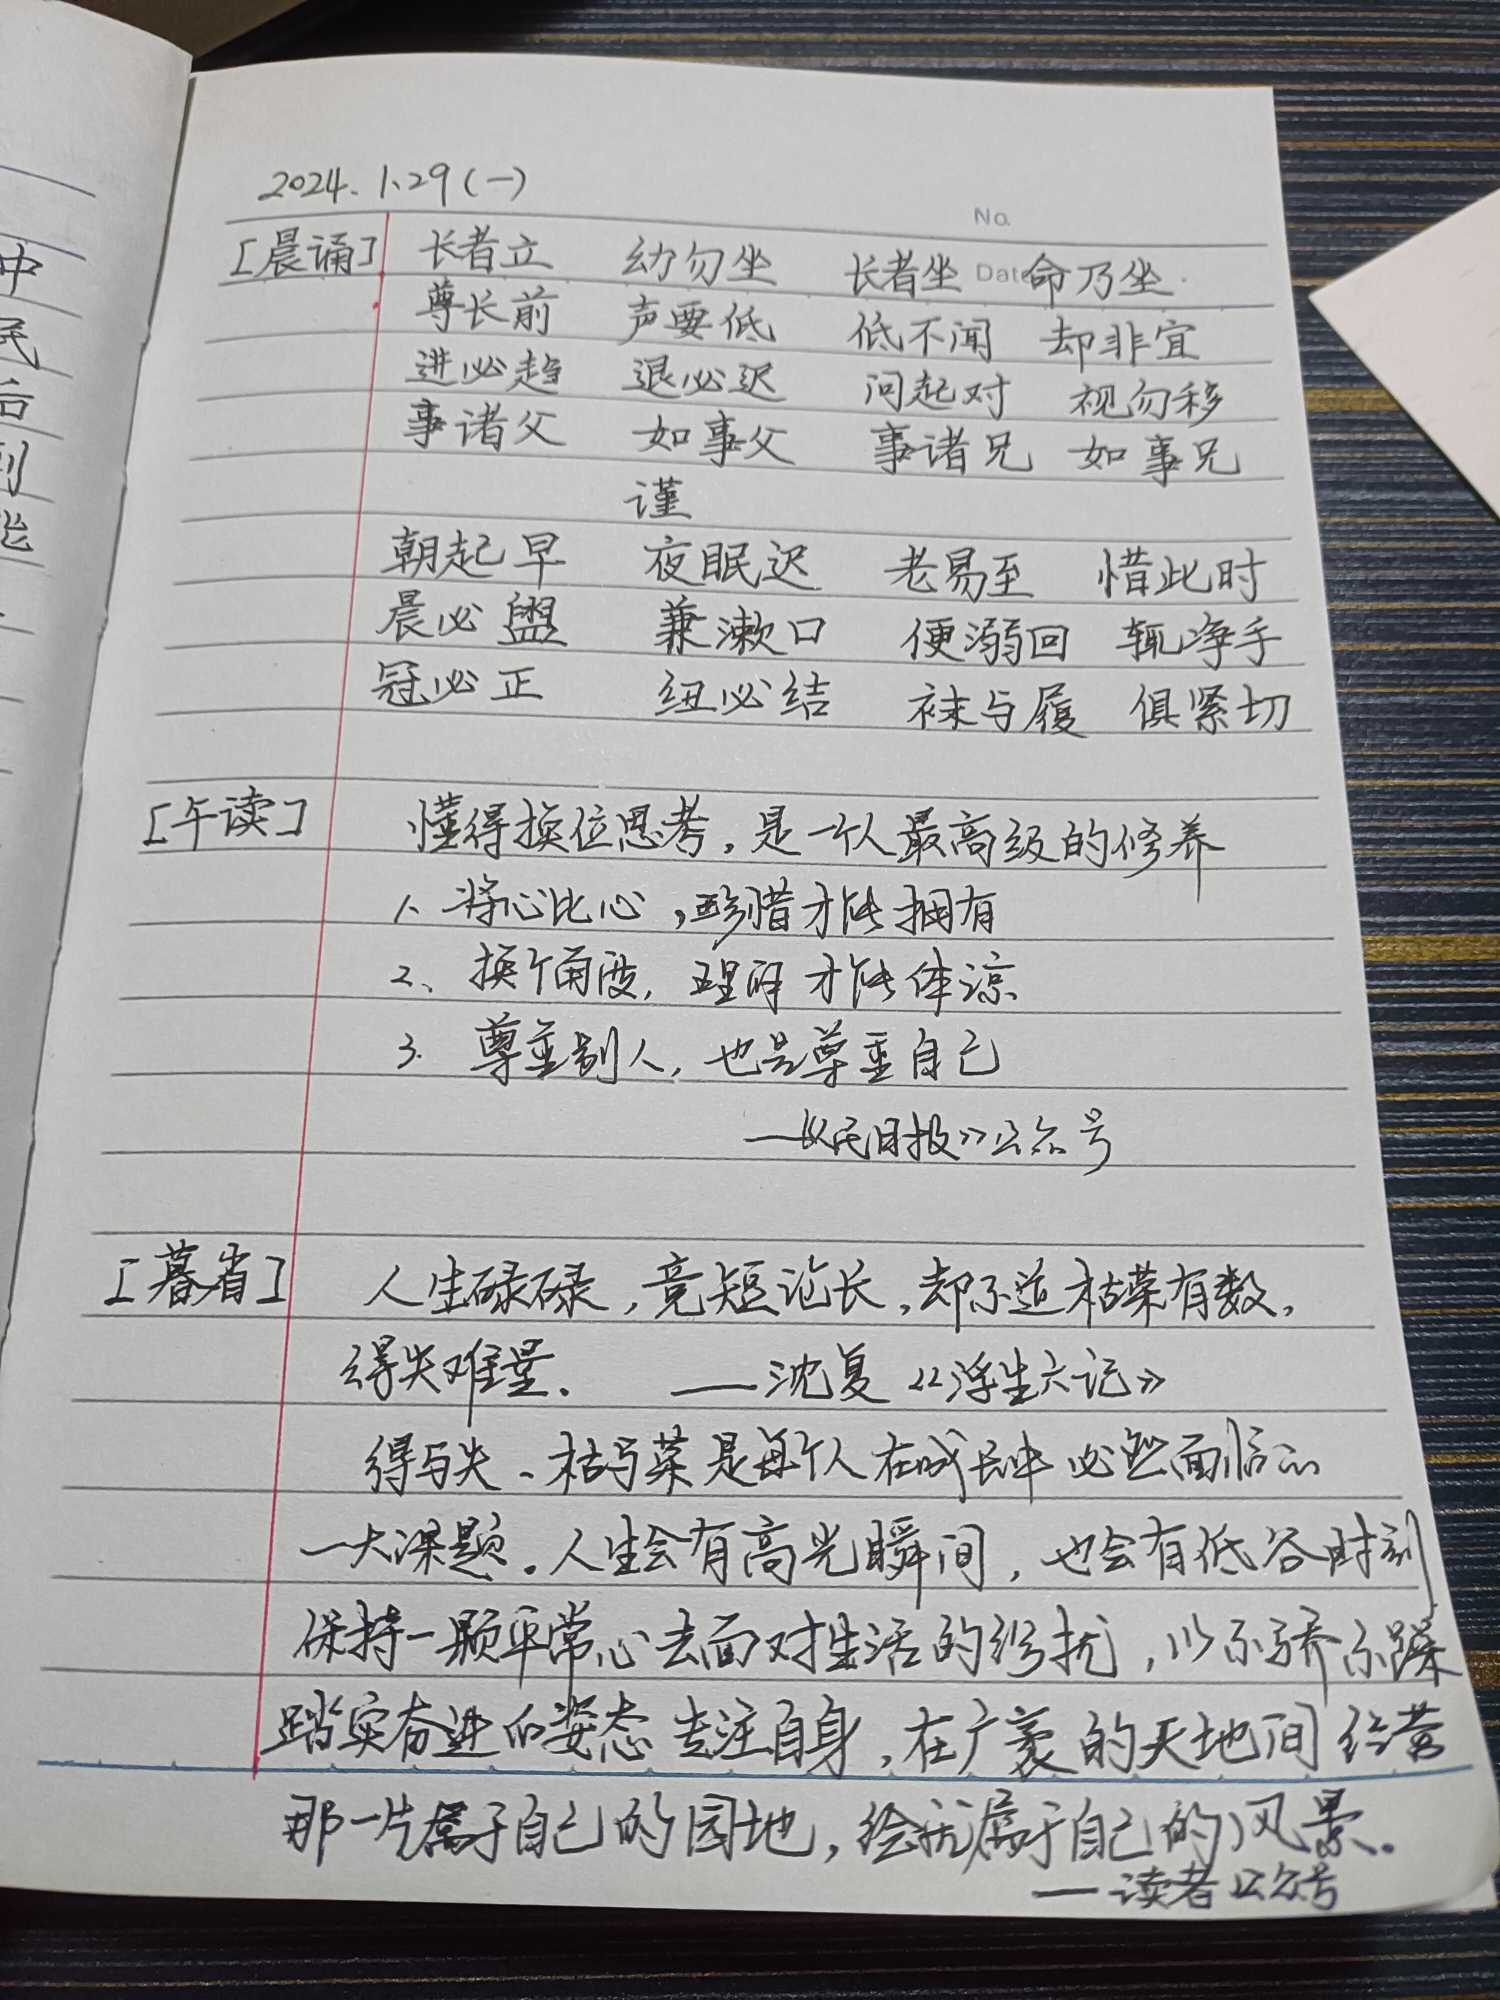 中
民
后
到
2024.1.29(一)
No.
[晨诵] 长者立 幼勿坐 长者坐 Date 命乃坐.
尊长前 声要低 低不闻 却非宜
进必趋 退必迟 问起对 视勿移
事诸父 如事父 事诸兄 如事兄
谨
朝起早 夜眠迟 老易至 惜此时
晨必盥 兼漱口 便溺回 辄净手
冠必正 纽必结 袜与履 俱紧切
[午读] 懂得换位思考,是一个人最高级的修养
1. 将心比心,珍惜才能拥有
2、换个角度,理解才能体谅.
3. 尊重别人,也是尊重自己
——《人民日报》公众号
[暮省] 人生碌碌,竞短论长,却不道枯荣有数,
得失难量. ——沈复《浮生六记》
得与失、枯与荣是每个人在成长中必然面临的
一大课题。人生会有高光瞬间,也会有低谷时刻
保持一颗平常心去面对生活的纷扰,以不骄不躁
踏实奋进的姿态专注自身,在广袤的天地间经营
那一片属于自己的园地,绘就属于自己的风景.
——读者公众号